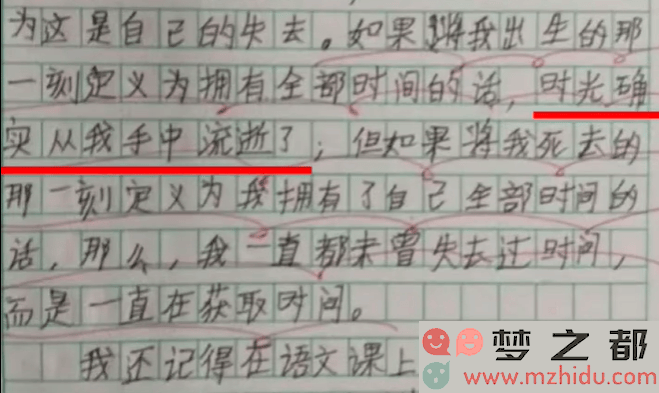 为这是自己的失去。如果将我出生的那
一刻定义为拥有全部时间的话，时光确
实从我手中流逝了；但如果将我死去的
那一刻定义为我拥有了自己全部时间的
话，那么，我一直都未曾失去过时间，
而是一直在获取时间。
我还记得在语文课上
梦之都
www.mzhidu.com